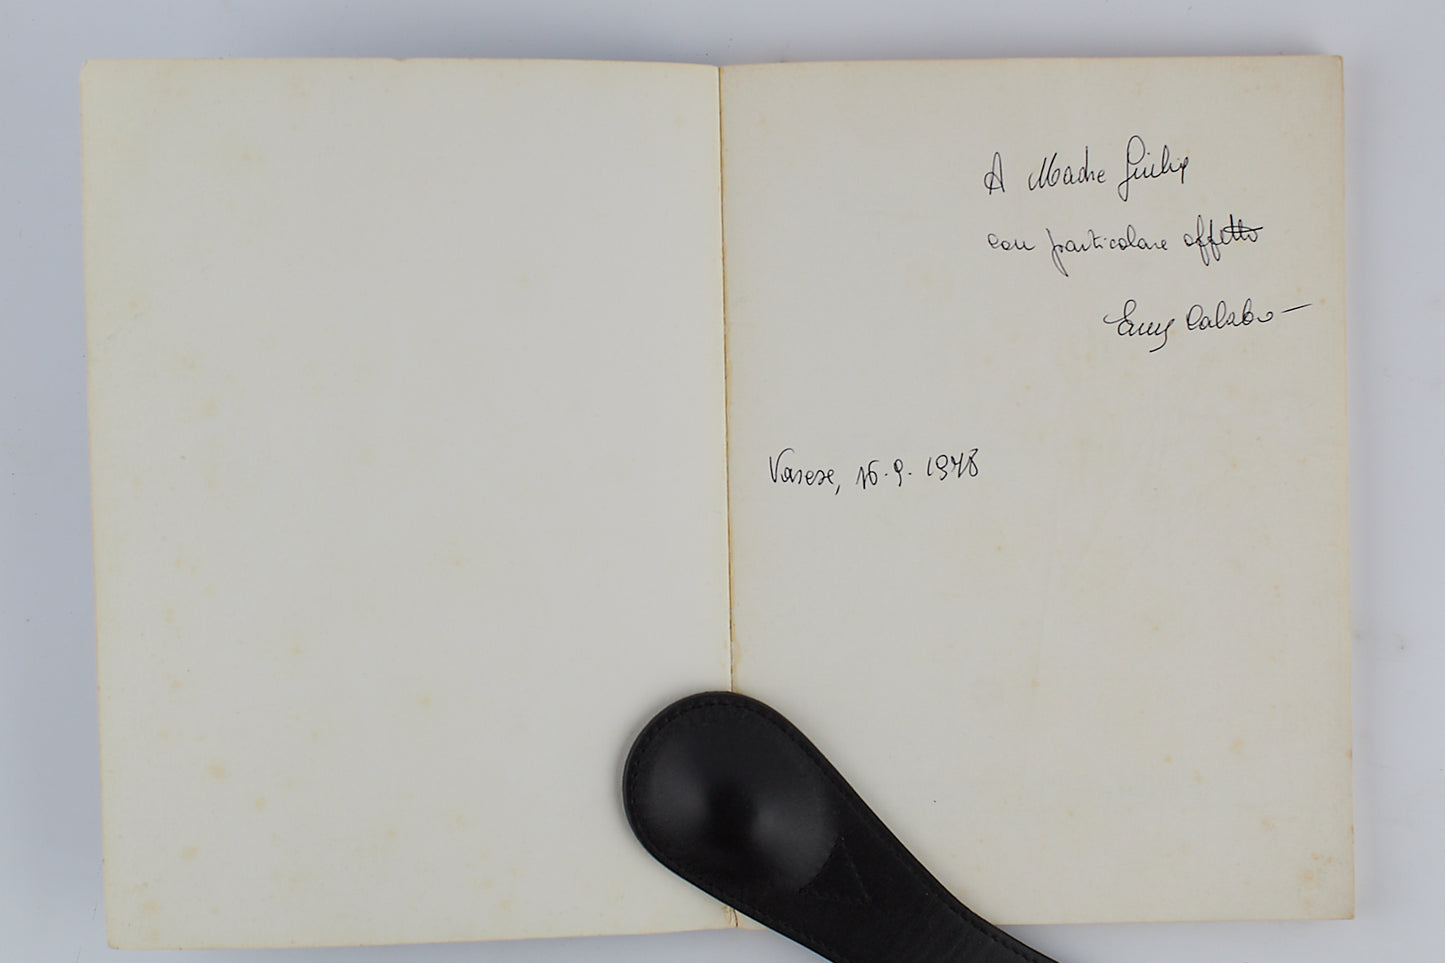 A Madre Giulia
con particolare affetto
Emy Calabrò
Varese, 16.9.1978